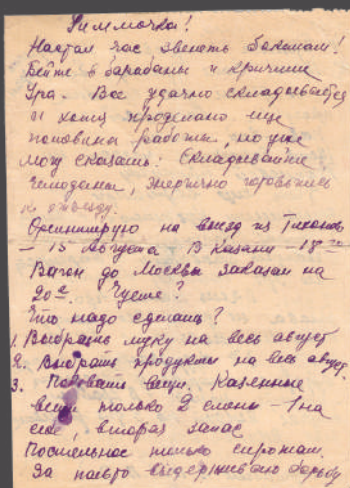 Риммочка!
Настал час звенеть бокалам!
Бейте в барабаны и кричите
Ура. Все удачно складывается
и хотя проделано еще
половина работы, но уже
могу сказать: Складывайте
чемоданы, энергично готовьтесь
к отъезду.
Ориентирую на выезд из
– 15 августа В Казани – 18го
Вагон до Москвы заказан на
20е Чуете?
Что надо сделать?
1. Выбрать муку на весь август
2. Выбрать продукты на весь август.
3. вещи. Казенные
вещи только 2 смены – 1 на
себе, вторая запас
Постельное только сиротам.
За пальто выдерживаю борьбу